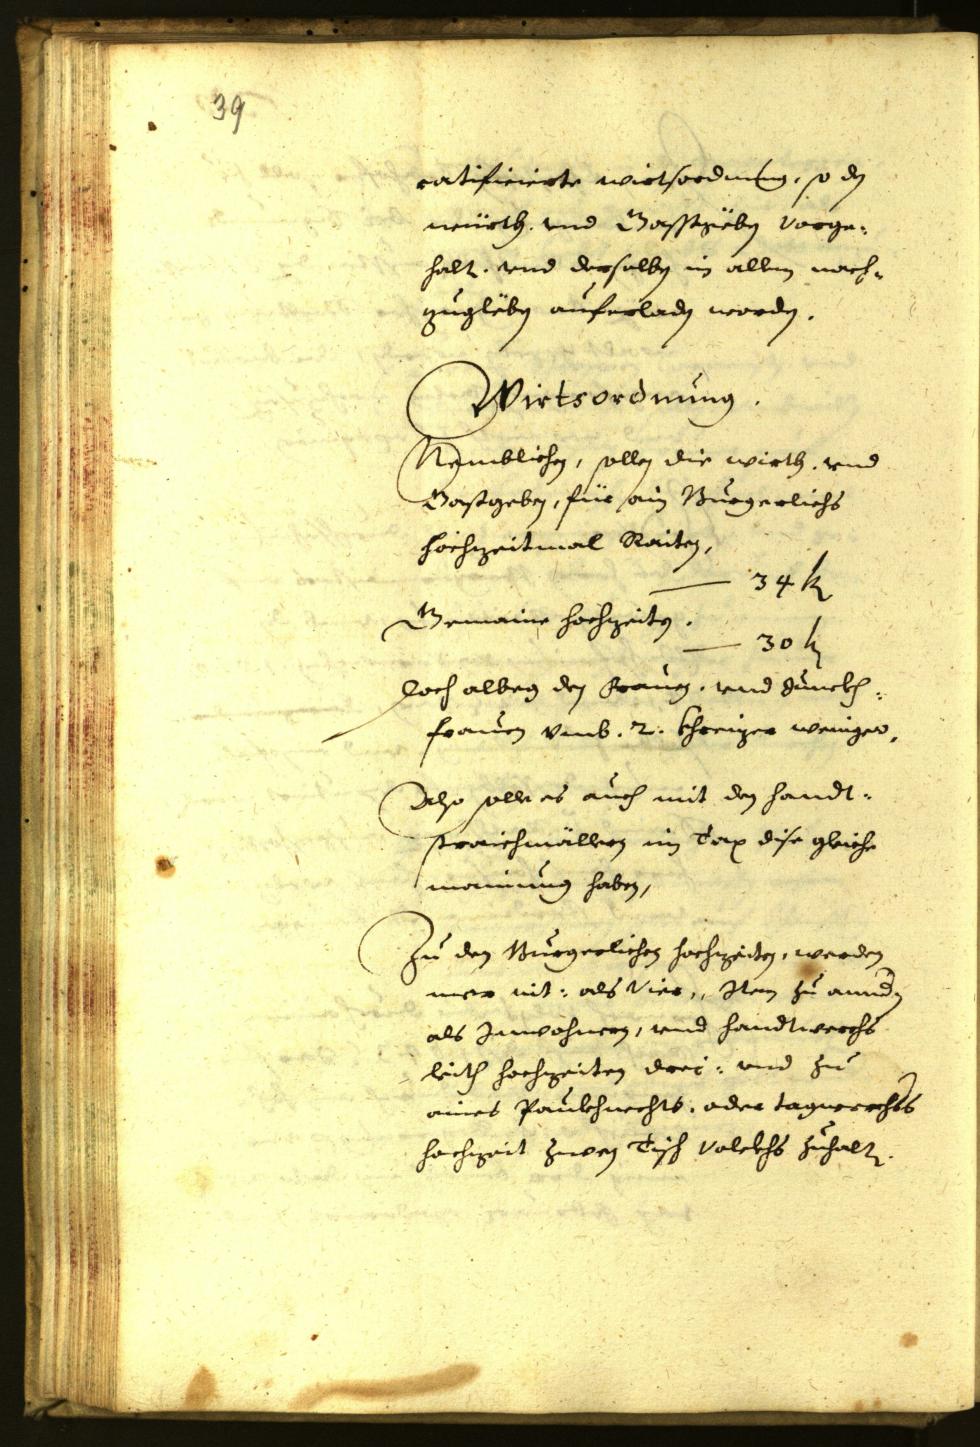 39
ratificierte wirtsordnung, so den
würth. vnd Gasstgëben vorge-
halt. vnd derselben in allem nach-
zugläben auferladen worden.
Wirtsordnung.
Nemblichen, sollen die wirth. vnd
Gastgeben, für ain Burgerlichs
hochzeitmal Raiten,
— 34 k
Gemaine hochzeiten.
— 30 k
doch alweg den Frauen. vnd Junckh-
frauen vmb. 2. khreizer weniger,
Also solle es auch mit den handt-
straichmällern im Tax dise gleiche
mainung haben,
Zu den Burgerlichen hochzeiten, werden
mer nit: als Vier,, Item zu anndern
als Inwohnern, vnd handtwerchs
leith hochzeiten drei: vnd zu
aines Paukhnechts, oder tagwerchers
hochzeit zwen Tisch volckhs zuhalten.